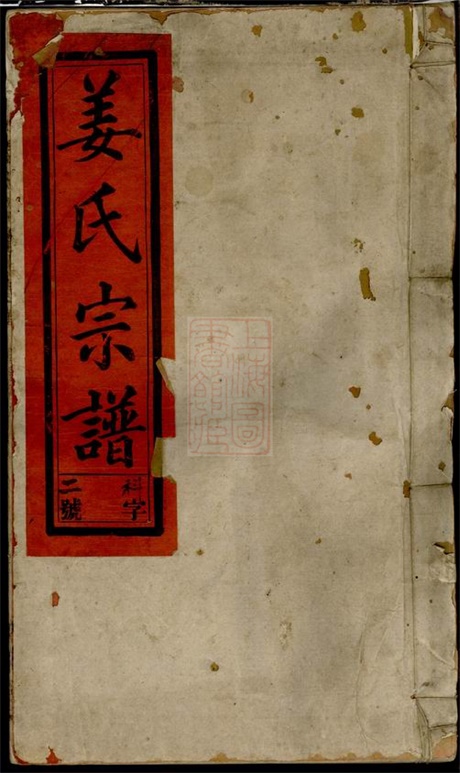 姜氏宗譜
科字
二號
上海圖
書館藏